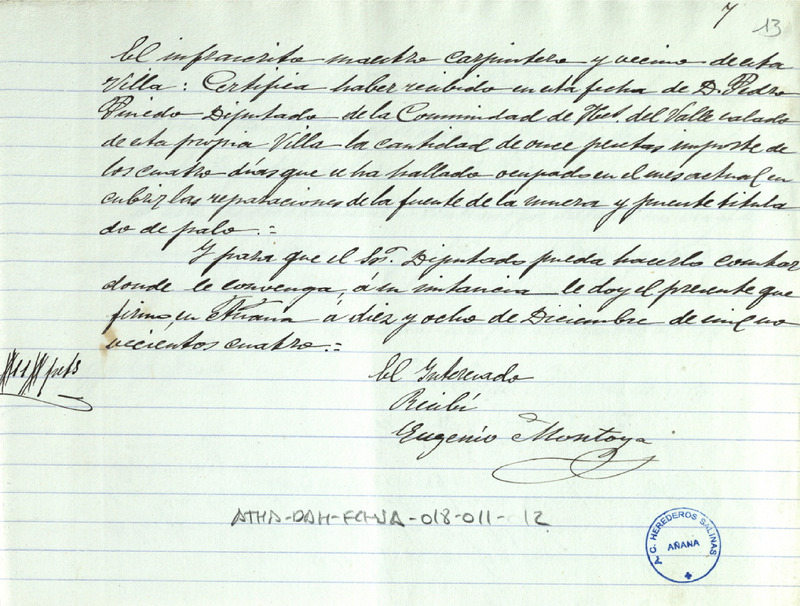 7
13
El infrascrito maestro carpintero y vecino de esta
Villa: Certifica haber recibido en esta fecha de D. Pedro
Pinedo Diputado de la Comunidad de Her. del Valle salado
de esta propia Villa la cantidad de once pesetas importe de
los cuatro días que se ha hallado ocupado en el mes actual en
cubrir las reparaciones de la fuente de la muera y puente titula
do de palo.=
Y para que el Sor. Diputado pueda hacerlo constar
donde le convenga, á su instancia le doy el presente que
firmo, en Añana á diez y ocho de Diciembre de mil no
vecientos cuatro.=
#11# pets
El Interesado
Recibí
Eugenio Montoya
ATHA-DAH-FCHSA-018-011-12
A. C. HEREDEROS SALINAS
AÑANA